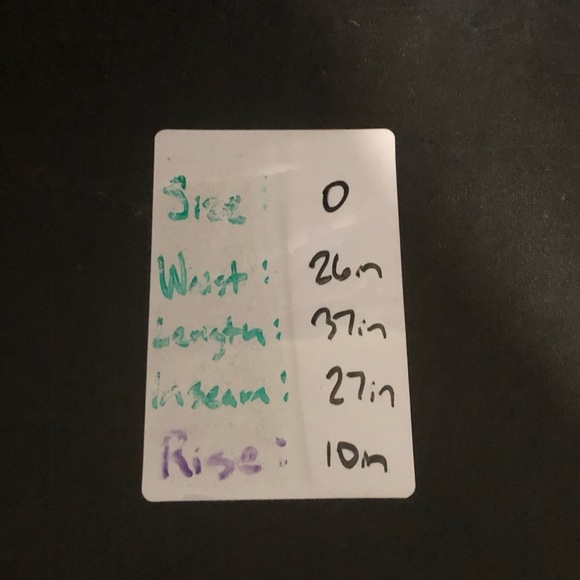 Size: 0
Waist: 26in
Length: 37in
Inseam: 27in
Rise: 10in